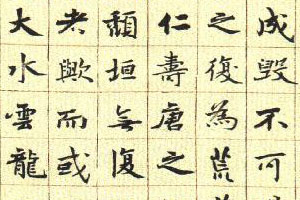 成毀不可
之復為荒
仁壽唐之
頹垣無復
者歟而或
大水雲龍